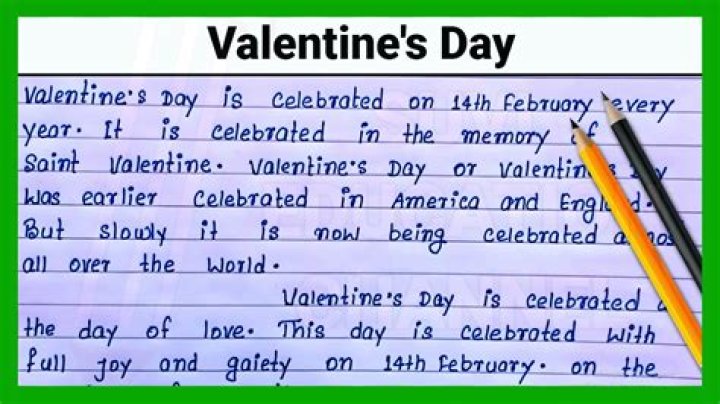 Valentine's Day
Valentine's Day is celebrated on 14th February every
year. It is celebrated in the memory of
Saint Valentine. Valentine's Day or Valentine's Day
was earlier celebrated in America and England.
But slowly it is now being celebrated almost
all over the world.
Valentine's Day is celebrated
the day of love. This day is celebrated with
full joy and gaiety on 14th February. on the